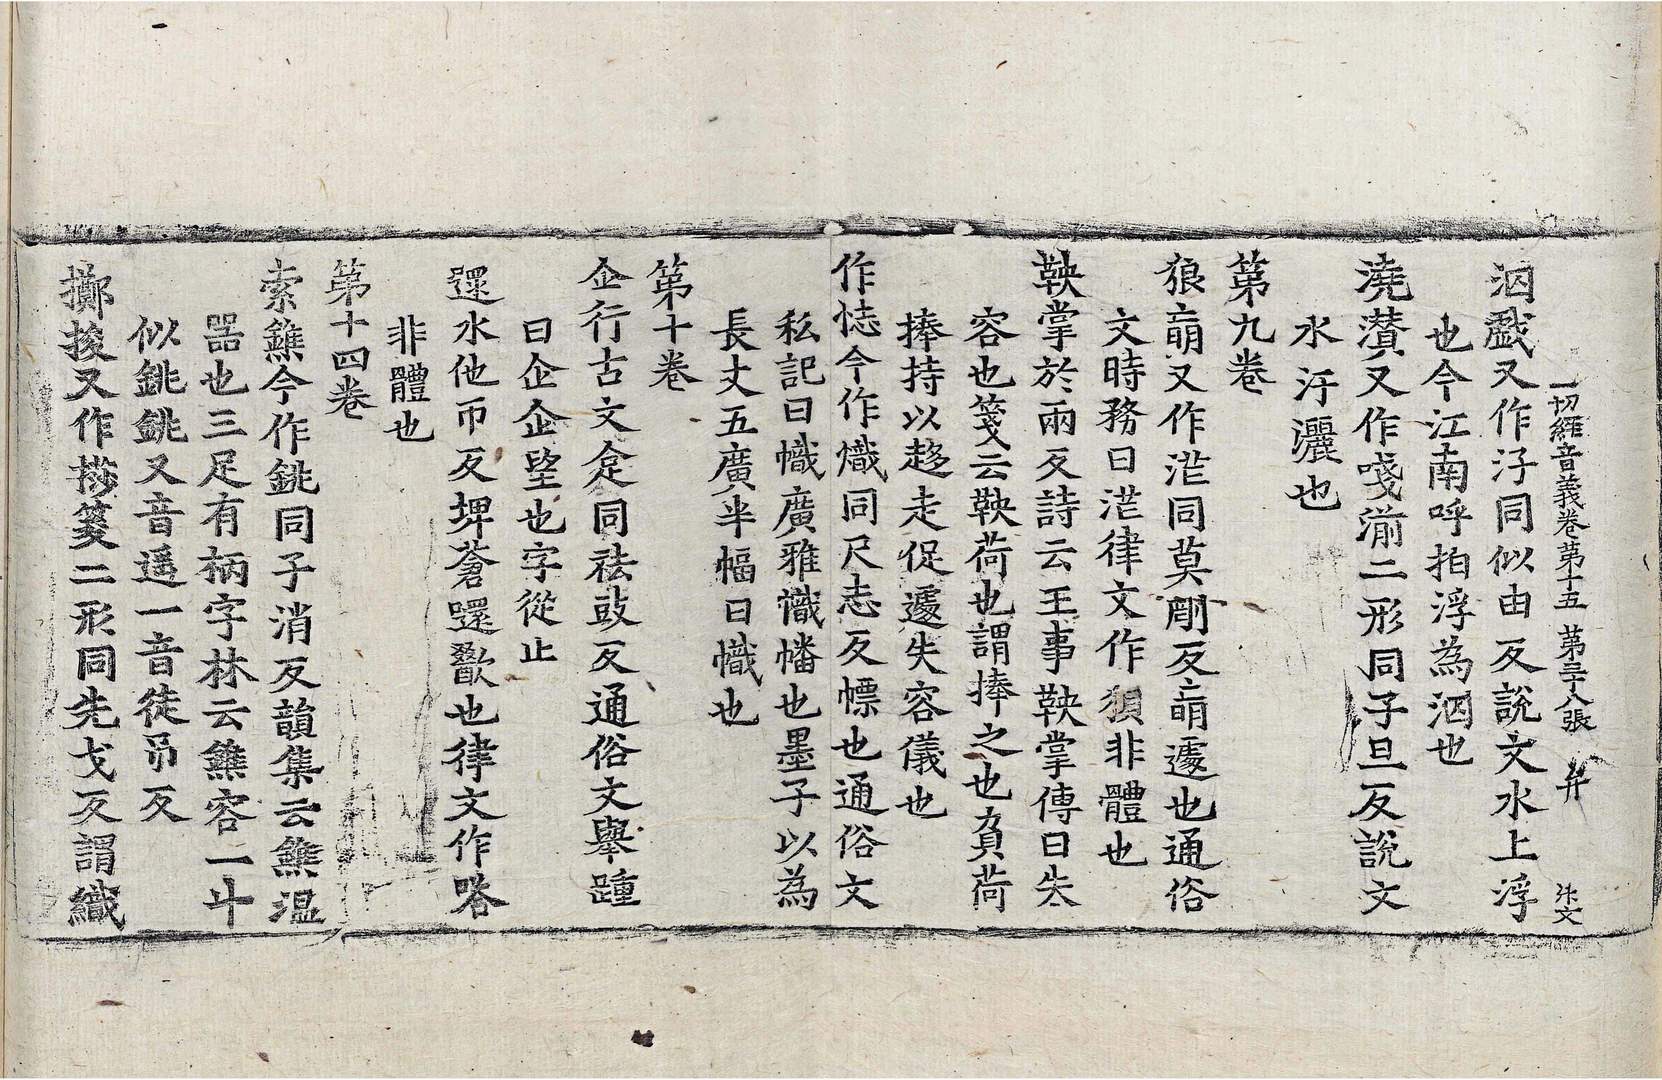 一切經音義卷第十五 第三十八張 弁
泅戲又作汓同似由反說文水上浮
也今江南呼拍浮為泅也
澆灒又作㳻湔二形同子旦反說文
水汙灑也
第九卷
狼䒃又作茫同莫剛反䒃遽也通俗
文時務曰茫律文作狽非體也
鞅掌於兩反詩云王事鞅掌傳曰失
容也箋云鞅荷也謂捧之也負荷
捧持以趍走促遽失容儀也
作㤴今作幟同尺志反幖也通俗文
私記曰幟廣雅幟幡也墨子以為
長丈五廣半幅曰幟也
第十卷
企行古文㐸同祛豉反通俗文舉踵
曰企企望也字從止
還水他帀反埤蒼還歠也律文作㗳
非體也
第十四卷
索鐎今作銚同子消反韻集云鐎溫
器也三足有柄字林云鐎容一斗
似銚銚又音遥一音徒弔反
擲捘又作㨖䇳二形同先戈反謂織